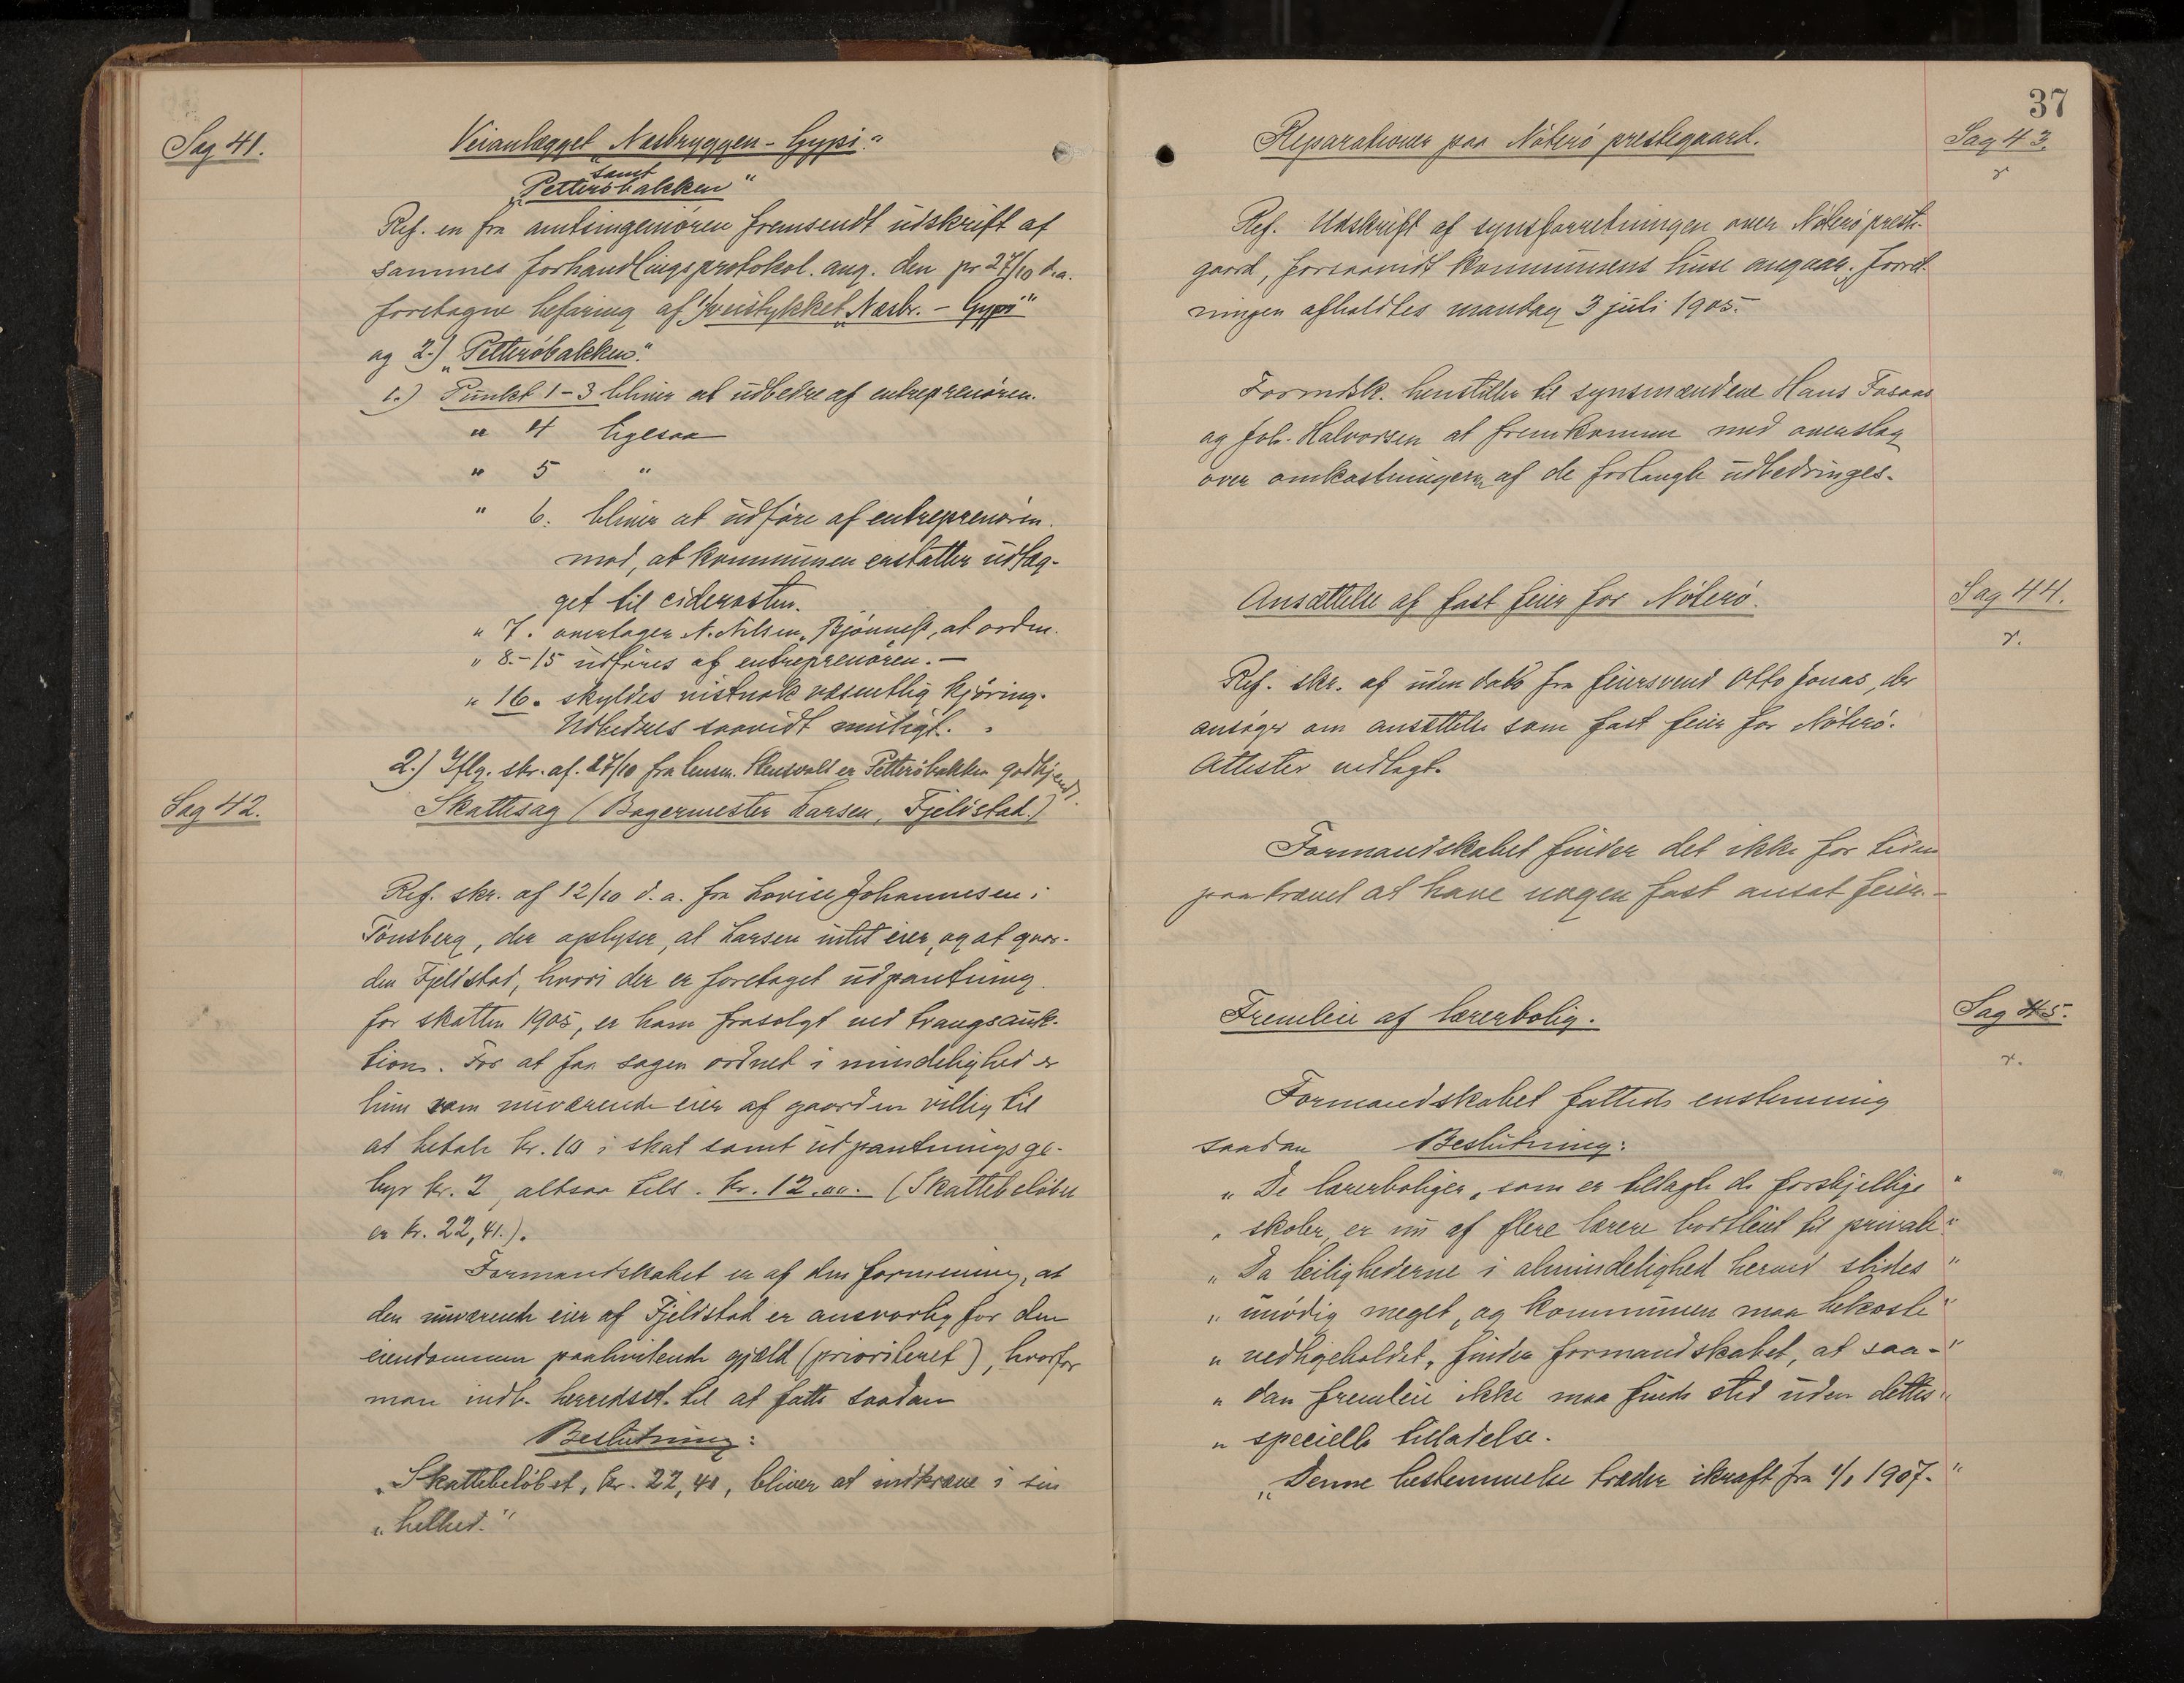 Sag 41.
Veianlægget „Næsbryggen - Gypi“
samt
„Petterøbakken“
Ref. en fra amtsingeniøren fremsendt udskrift af
sammes forhandlingsprotokol. ang. den pr 27/10 d.a.
foretagne befaring af 1) veistykket „Næsbr. - Gypi“
og 2.) „Petterøbakken“.
1.) Punkt 1-3 bliver at udbedre af entreprenøren.
" 4 ligesaa
" 5 "
" 6. bliver at udføre af entreprenøren.
mod, at kommunen erstatter udlæg-
get til cidersten.
" 7. overtager N. Nilsen, Bjønness, at ordne.
" 8.-15 udføres af entreprenøren. —
" 16. skyldes vistnok væsentlig kjøring.
Udbedres saavidt muligt.
2.) Iflg. skr. af. 27/10 fra lensm. Stensvold er Petterøbakken godkjendt.
Sag 42.
Skattesag (Bagermester Larsen, Fjeldstad.)
Ref. skr. af 12/10 d.a. fra Lovise Johannesen i
Tønsberg, der oplyser, at Larsen intet eier, og at gaar-
den Fjeldstad, hvori der er foretaget udpantning
for skatten 1905, er ham frasolgt ved tvangsauk-
tion. For at faa sagen ordnet i mindelighed er
hun som nuværende eier af gaarden villig til
at betale kr. 10 i skat samt udpantningsge-
byr kr. 2, altsaa tils. kr. 12.00. (Skattebeløbet
er kr. 22,41.).
Formandskabet er af den formening, at
den nuværende eier af Fjeldstad er ansvarlig for den
eiendommen paahvilende gjæld (prioriteret), hvorfor
man indb. herredsst. til at fatte saadan
Beslutning:
„Skattebeløbet, kr. 22,41, bliver at indkræve i sin
„helhed.“
37
Reparationer paa Nøterø prestegaard.
Sag 43.
r
Ref. Udskrift af synsforretningen over Nøterø preste-
gaard, forsaavidt kommunens huse angaar. Forret-
ningen afholdtes mandag 3 juli 1905.
Formdsk. henstiller til synsmændene Hans Fosaas
og Joh. Halvorsen at fremkomme med overslag
over omkostningerne af de forlangte udbedringer.
Ansættelse af fast feier for Nøterø.
Sag 44.
r.
Ref. skr. af uden dato fra feiersvend Otto Jonas, der
ansøger om ansættelse som fast feier for Nøterø.
Attester vedlagt.
Formandskabet finder det ikke for tiden
paakrævet at have nogen fast ansat feier. -
Fremleie af lærerbolig.
Sag 45.
r.
Formandskabet fattede enstemmig
saadan Beslutning:
„De lærerboliger, som er tillagte de forskjellige “
„skoler, er nu af flere lærere bortleiet til private “
„Da leilighederne i almindelighed herved slides “
„unødig meget, og kommunen maa bekoste “
„vedligeholdet, finder formandskabet, at saa- “
„dan fremleie ikke maa finde sted uden dettes “
„specielle tilladelse.
„Denne bestemmelse træder ikraft fra 1/1 1907. “